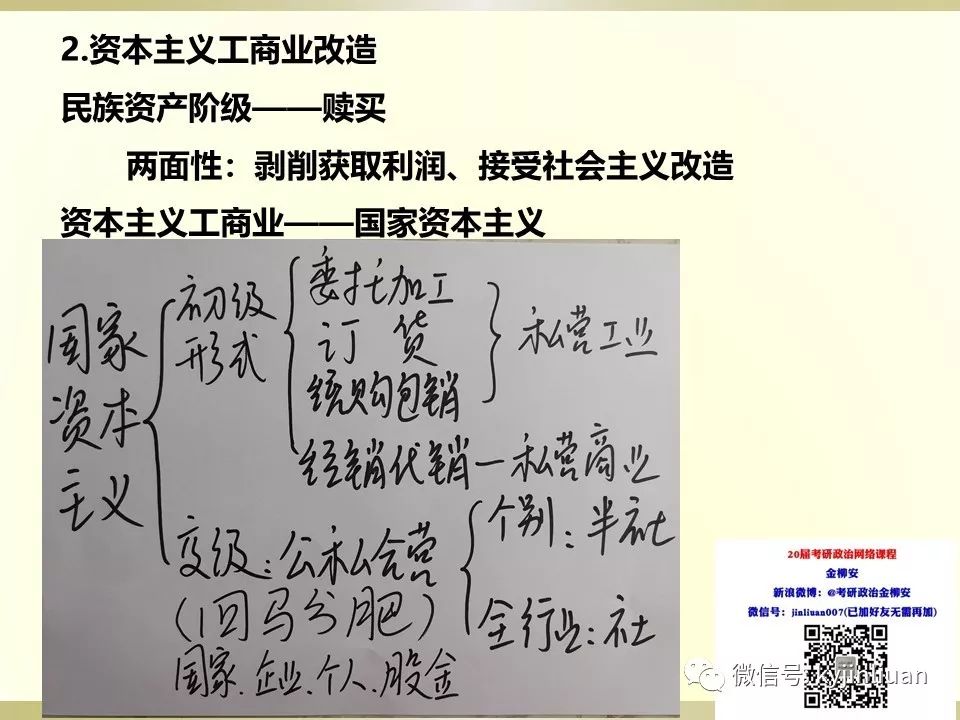 2.资本主义工商业改造
民族资产阶级——赎买
两面性：剥削获取利润、接受社会主义改造
资本主义工商业——国家资本主义
国家
资本
主义
初级
形式
委托加工
订 货
统购包销
私营工业
经销代销—私营商业
高级：公私合营
(四马分肥)
国家、企业、个人、股金
个别：半社
全行业：社
20届考研政治网络课程
金柳安
新浪微博：@考研政治金柳安
微信号：jinliuan007(已加好友无需再加)
微信号: kyjinliuan